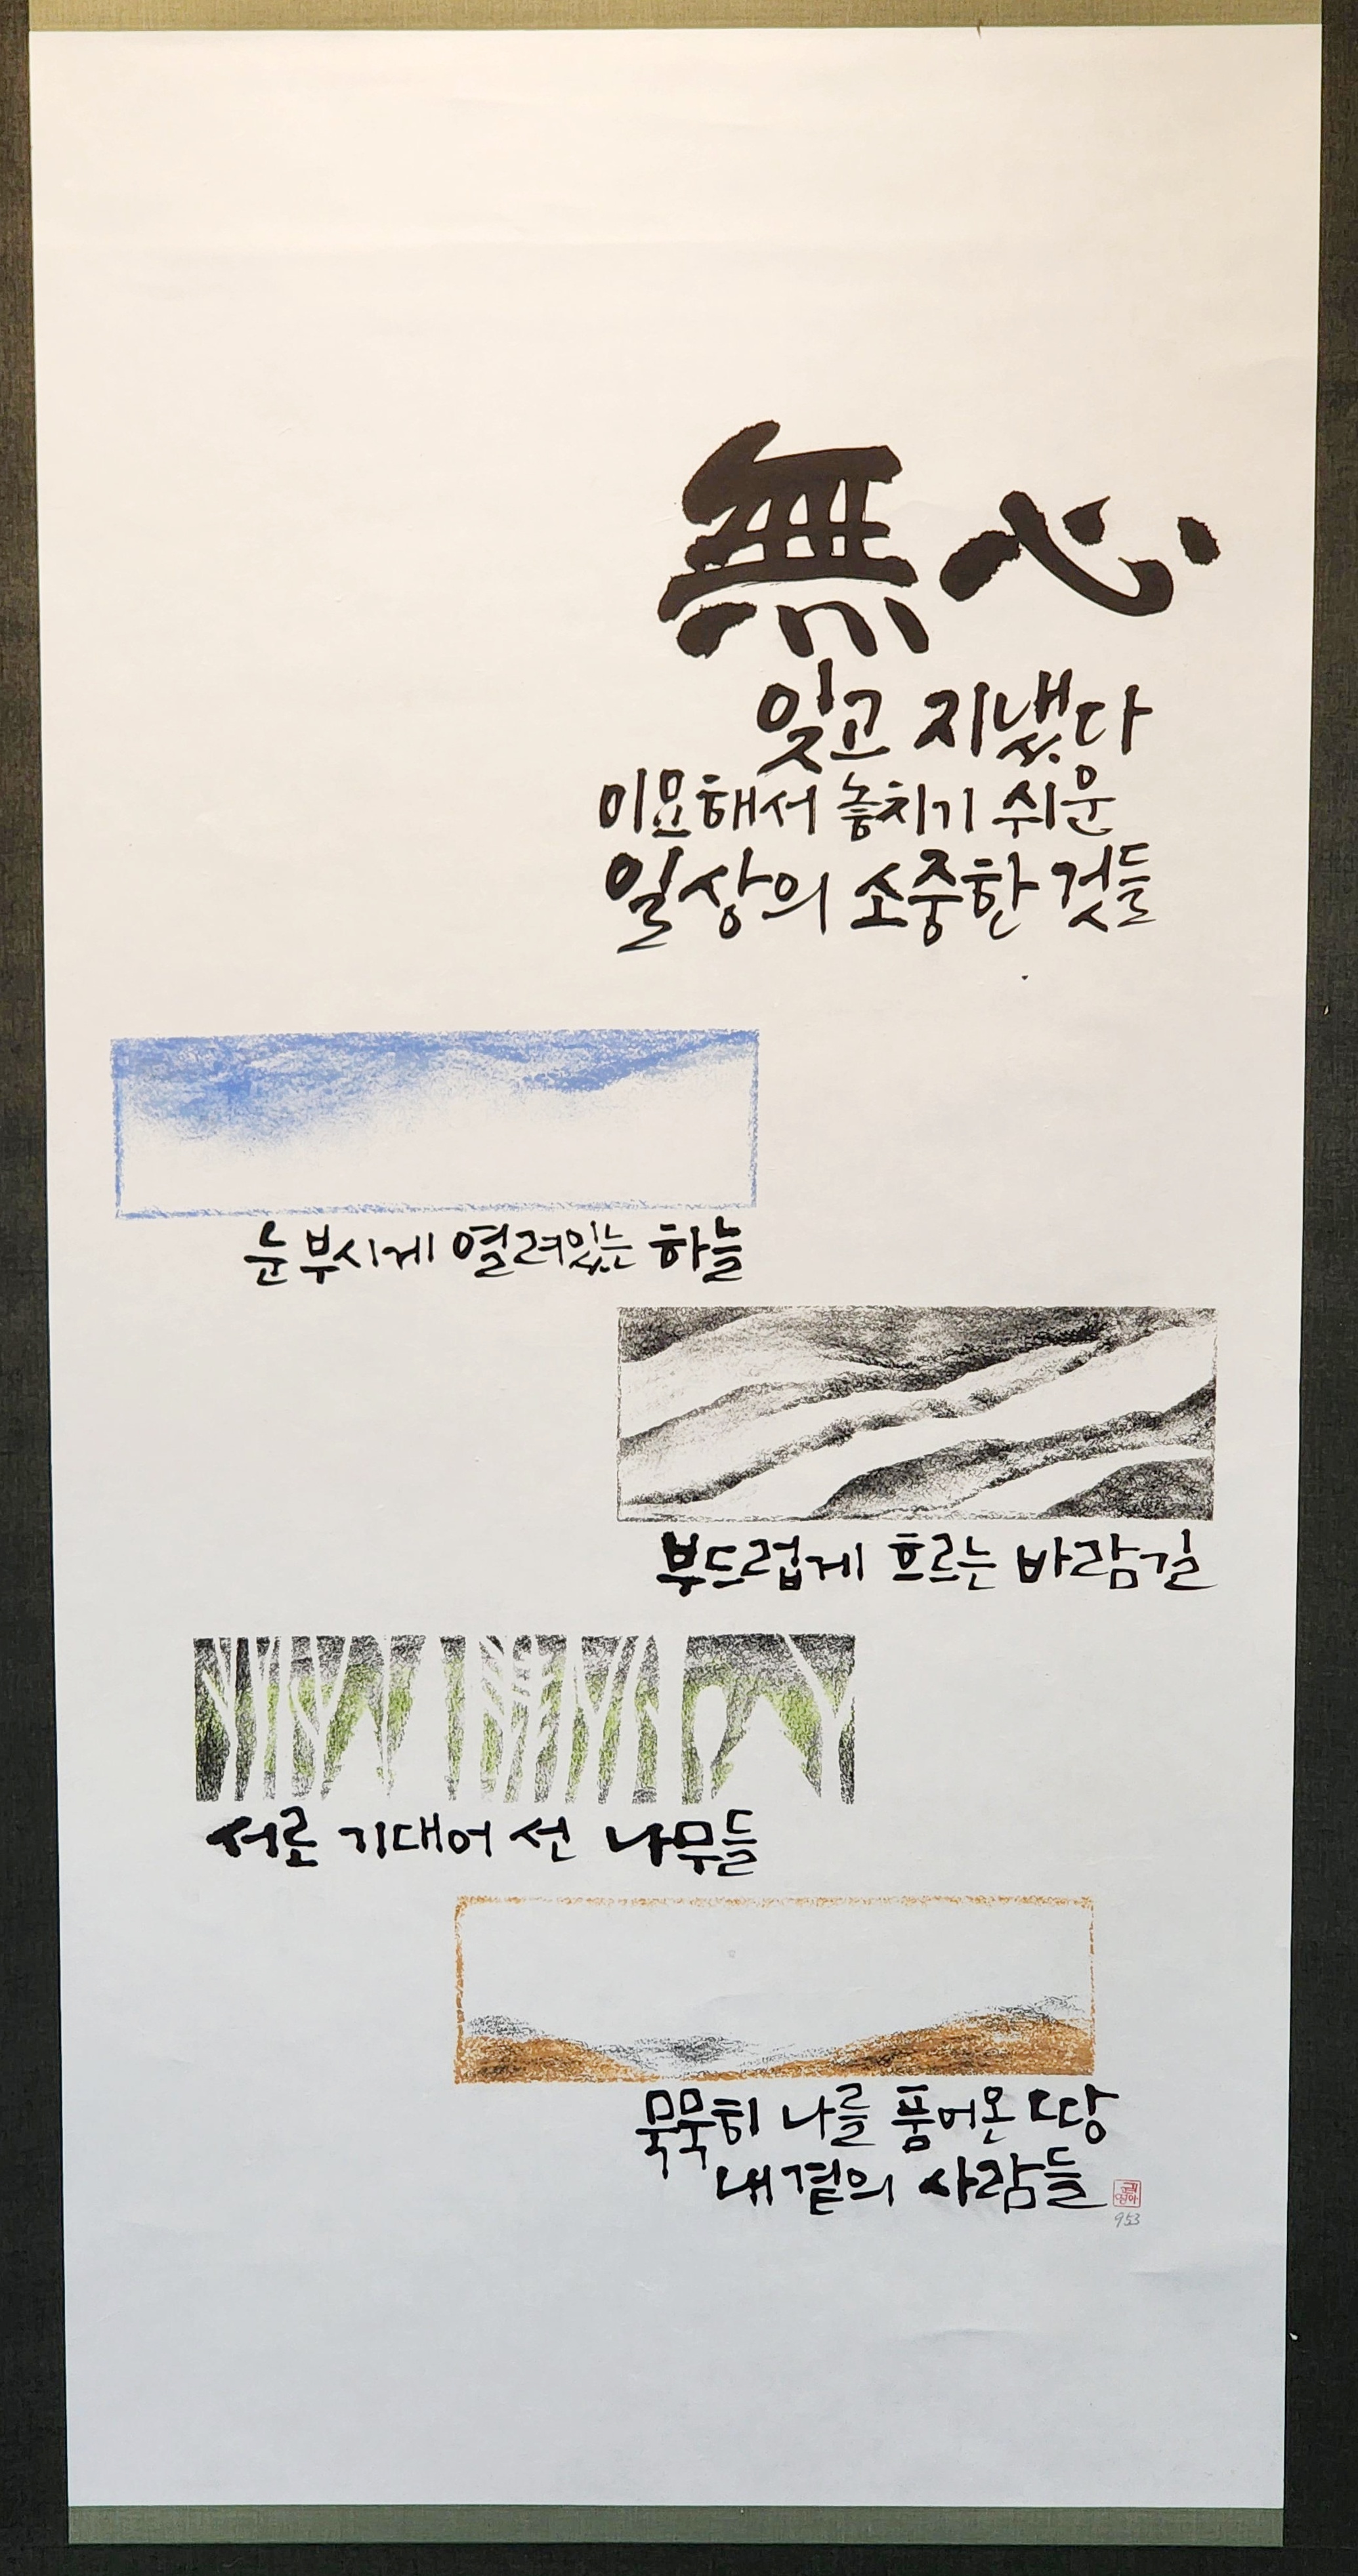 無心
잊고 지냈다
미묘해서 놓치기 쉬운
일상의 소중한 것들
눈부시게 열려있는 하늘
부드럽게 흐르는 바람길
서로 기대어 선 나무들
묵묵히 나를 품어온 땅
내 곁의 사람들
953